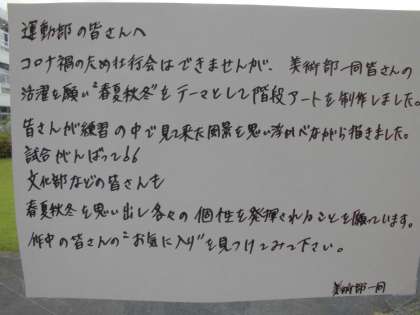 運動部の皆さんへ
コロナ禍のため壮行会はできませんが、美術部一同皆さんの
活躍を願い"春夏秋冬"をテーマとして階段アートを制作しました。
皆さんが練習の中で見て来た風景を思い浮かべながら描きました。
試合がんばって!!
文化部などの皆さんも
春夏秋冬を思い出し各々の個性を発揮されることを願っています。
作中の皆さんの"お気に入り"を見つけてみて下さい。
美術部一同